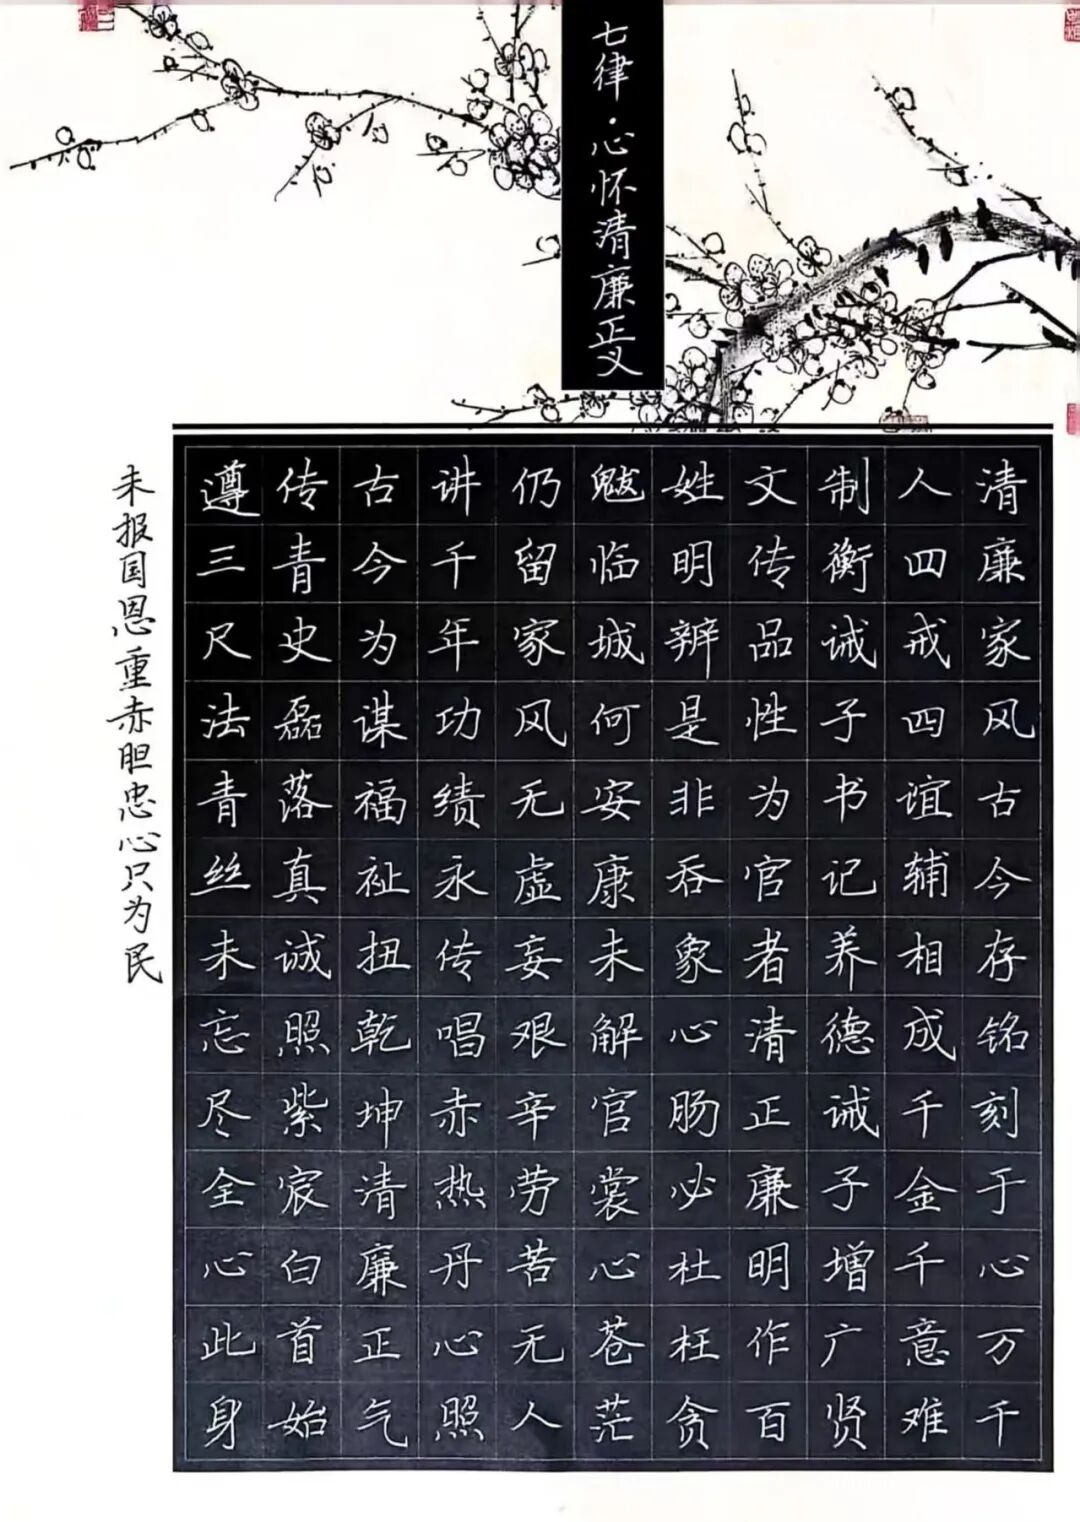 七律·心怀清廉正义
清廉家风古今存铭刻于心万千
人四戒四谊辅相成千金千意难
制衡诫子书记养德诫子增广贤
文传品性为官者清正廉明作百
姓明辨是非吞象心肠必杜枉贪
魃临城何安康未解官裳心苍茫
仍留家风无虚妄艰辛劳苦无人
讲千年功绩永传唱赤热丹心照
古今为谋福祉扭乾坤清廉正气
传青史磊落真诚照紫宸白首始
遵三尺法青丝未忘尽全心此身
未报国恩重赤胆忠心只为民